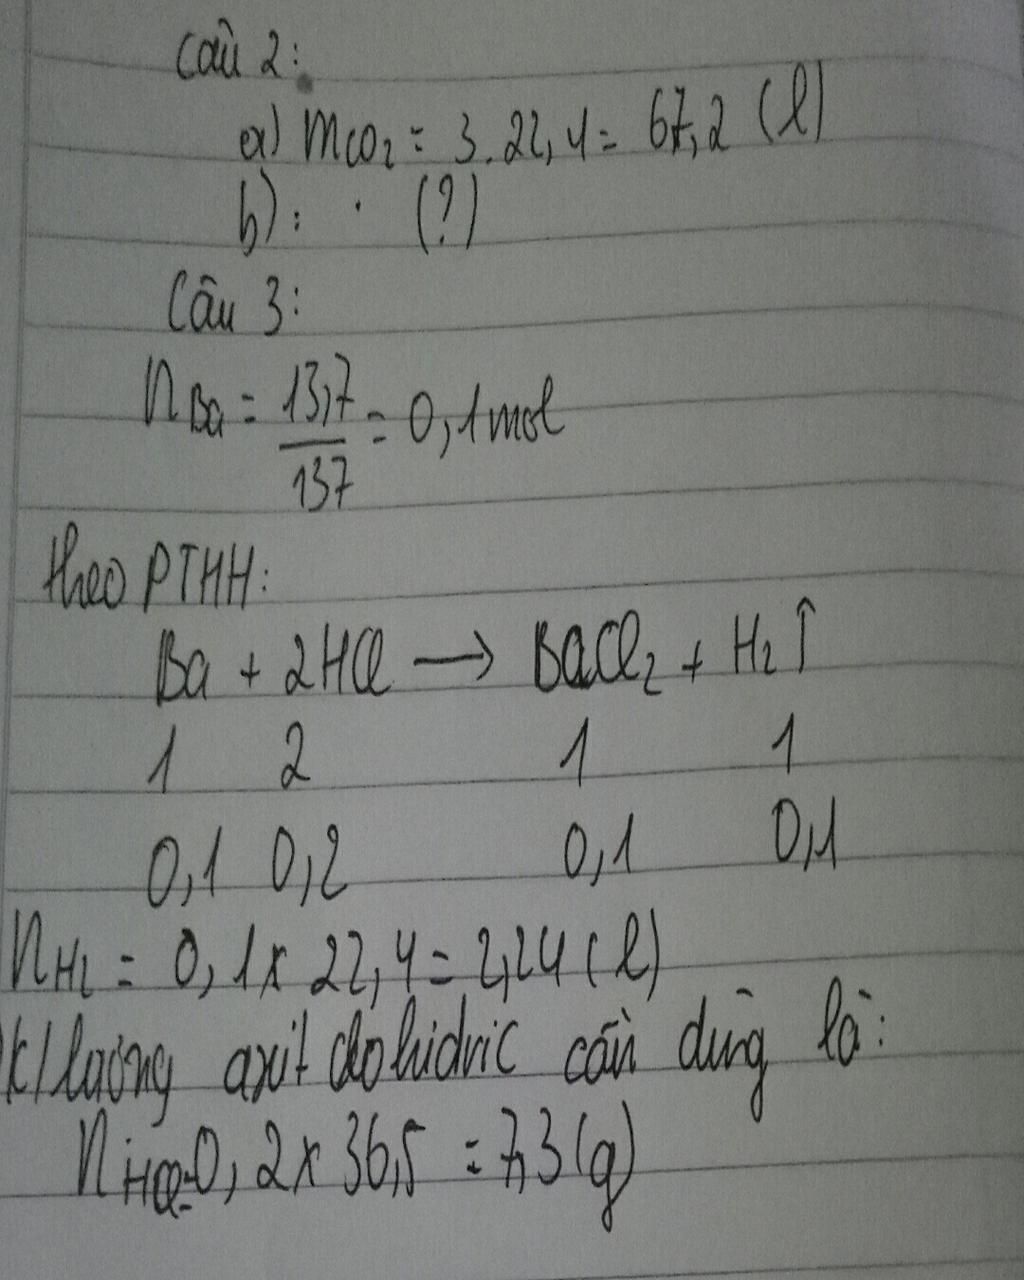 Câu 2:
a) mCO₂ = 3.22,4 = 67,2 (l)
b): . (?)
Câu 3:
nBa = 13,7/137 = 0,1 mol
theo PTHH:
Ba + 2HCl → BaCl₂ + H₂↑
1 2 1 1
0,1 0,2 0,1 0,1
nH₂ = 0,1 x 22,4 = 2,24 (l)
k/lượng axit clohidric cần dùng là:
nHCl = 0,2 x 36,5 = 7,3 (g)